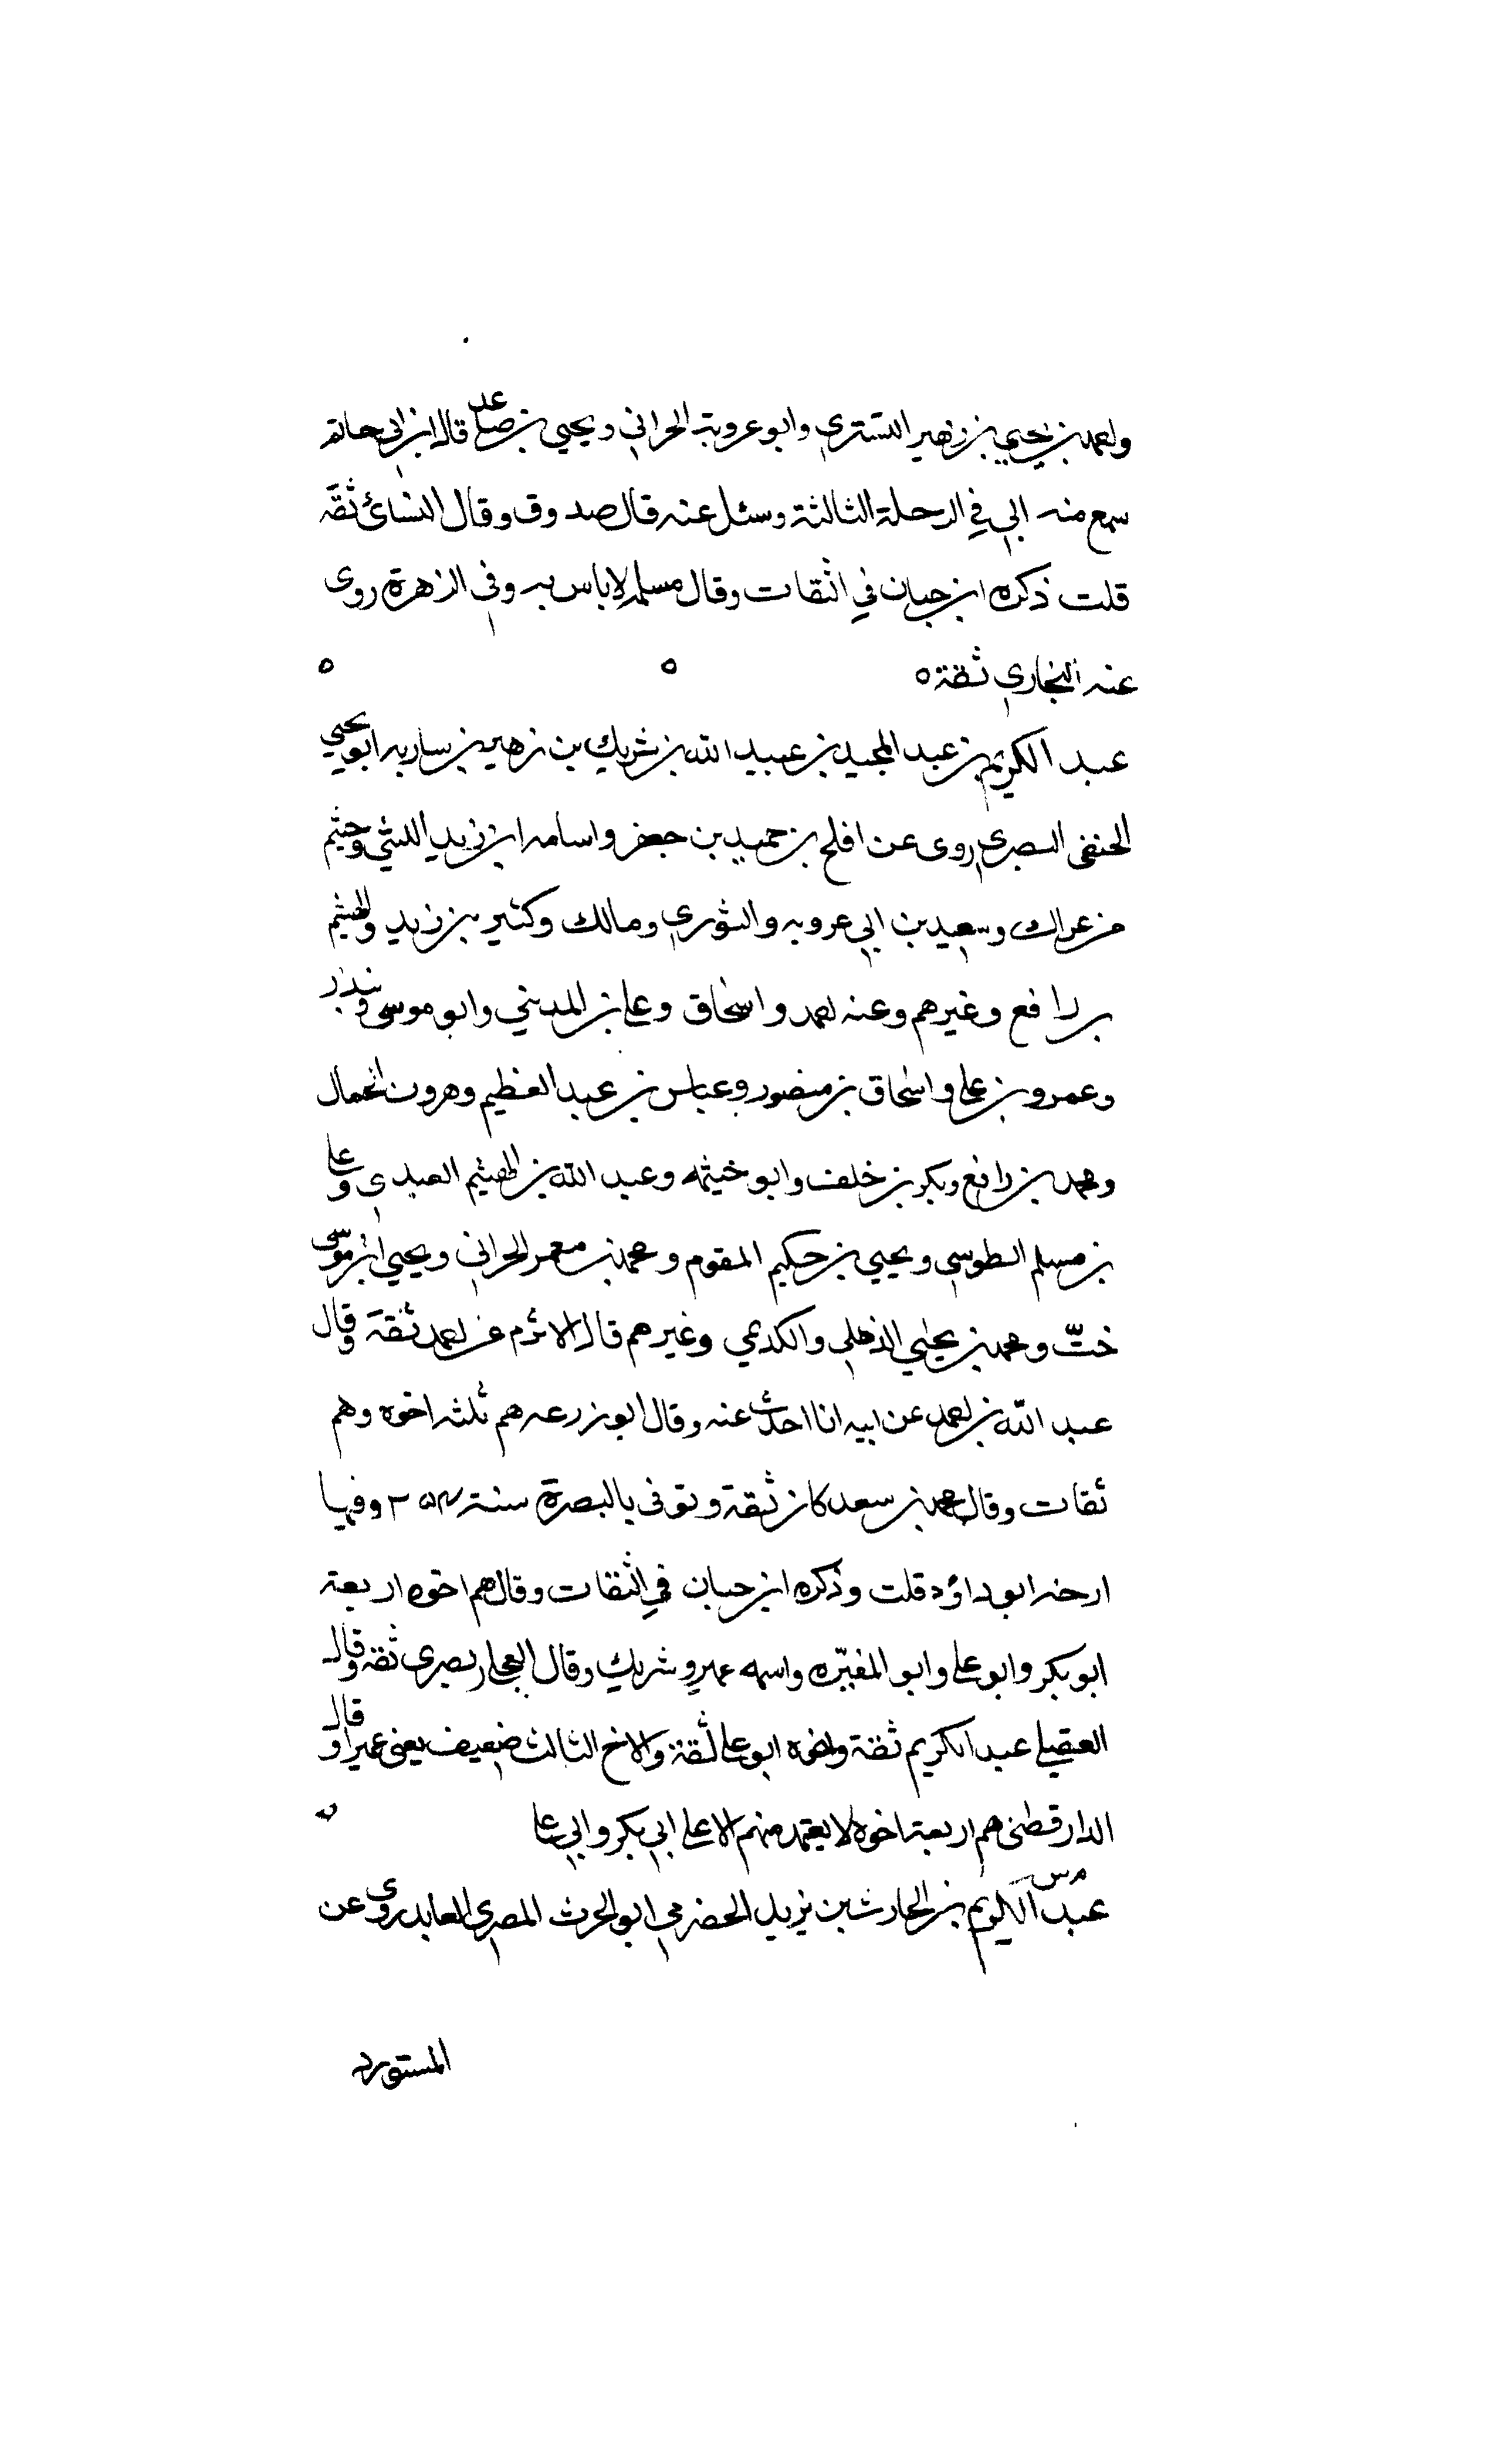 واحمد بن يحيى بن زهير التستري وابو عروبة الحراني ويحيى بن صاعد قال ابن ابي حاتم
سمع منه ابي في الرحلة الثالثة وسئل عنه قال صدوق وقال النسائ ثقة
قلت ذكره ابن حبان في الثقات وقال مسلمه لاباس به وفي الزهرة روى
عنه البخاري ثقة ه ه ه
عبد الكريم بن عبد المجيد بن عبيد الله بن شريك بن زهير بن ساريه ابو يحيى
الحنفى البصري روى عن افلح بن حميد بن جعفر واسامه ابن زيد الليثي وخثيم
بن عراك وسعيد بن ابي عروبه والثوري ومالك وكثير بن زيد والهيثم
بن رافع وغيرهم وعنه احمد واسحاق وعلي بن المديني وابو موسى وبندار
وعمرو بن علي واسحاق بن منصور وعباس بن عبد العظيم وهرون الحمال
ومحمد بن رافع وبكر بن خلف وابو خيثمه وعبد الله بن الهيثم العبدي وعلي
بن مسلم الطوسي ويحيي بن حكيم المقوم ومحمد بن معمر الحراني ويحيي ابن موسى
ختّ ومحمد بن يحيي الذهلي والكديمي وغيرهم قال الاثرم عن احمد ثقة وقال
عبد الله بن احمد عن ابيه انا احدث عنه وقال ابو زرعه هم ثلثه اخوه وهم
ثقات وقال محمد بن سعد كان ثقة وتوفى بالبصرة سنة ٢٥٤ وفيها
ارخه ابو داؤد قلت وذكره ابن حبان في الثقات وقال هم اخوه اربعة
ابو بكر وابو علي وابو المغيّره واسمه عمير وشريك وقال العجلي بصرى ثقه وقال
العقيلي عبد الكريم ثقة واخوه ابو علي ثقة والاخ الثالث ضعيف يعنى عميرا وقال
الدارقطنى هم اربعة اخوه لا يعتمد منهم الا علي ابي بكر وابي علي
م س
عبد الكريم بن الحارث بن يزيد الحضرمي ابو الحرث المصري العابد روى عن
المستورد